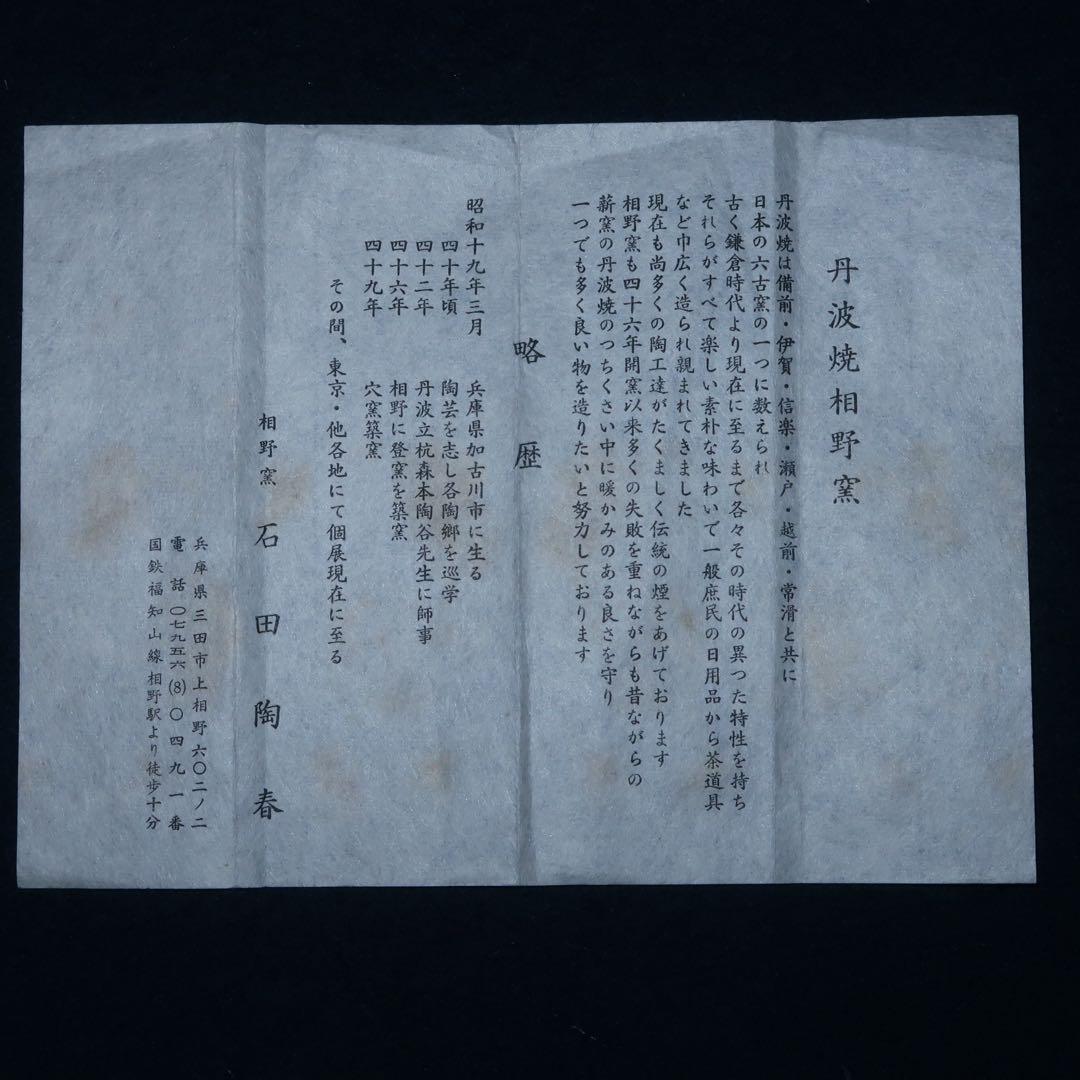 丹波焼相野窯
丹波焼は備前・伊賀・信楽・瀬戸・越前・常滑と共に
日本の六古窯の一つに数えられ
古く鎌倉時代より現在に至るまで各々その時代の異つた特性を持ち
それらがすべて楽しい素朴な味わいで一般庶民の日用品から茶道具
など巾広く造られ親まれてきました
現在も尚多くの陶工達がたくましく伝統の煙をあげております
相野窯も四十六年開窯以来多くの失敗を重ねながらも昔ながらの
薪窯の丹波焼のつちくさい中に暖かみのある良さを守り
一つでも多く良い物を造りたいと努力しております
略歴
昭和十九年三月 兵庫県加古川市に生る
四十年頃 陶芸を志し各陶郷を巡学
四十二年 丹波立杭森本陶谷先生に師事
四十六年 相野に登窯を築窯
四十九年 穴窯築窯
その間、東京・他各地にて個展現在に至る
相野窯 石田陶春
兵庫県三田市上相野六〇二ノ二
電話〇七九五六(8)〇四九一番
国鉄福知山線相野駅より徒歩十分